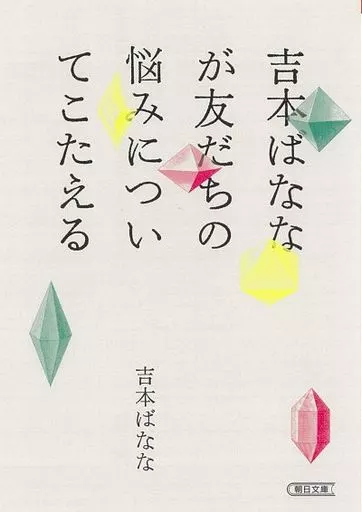 吉本ばなな
が友だちの
悩みについ
てこたえる
吉本ばなな
朝日文庫